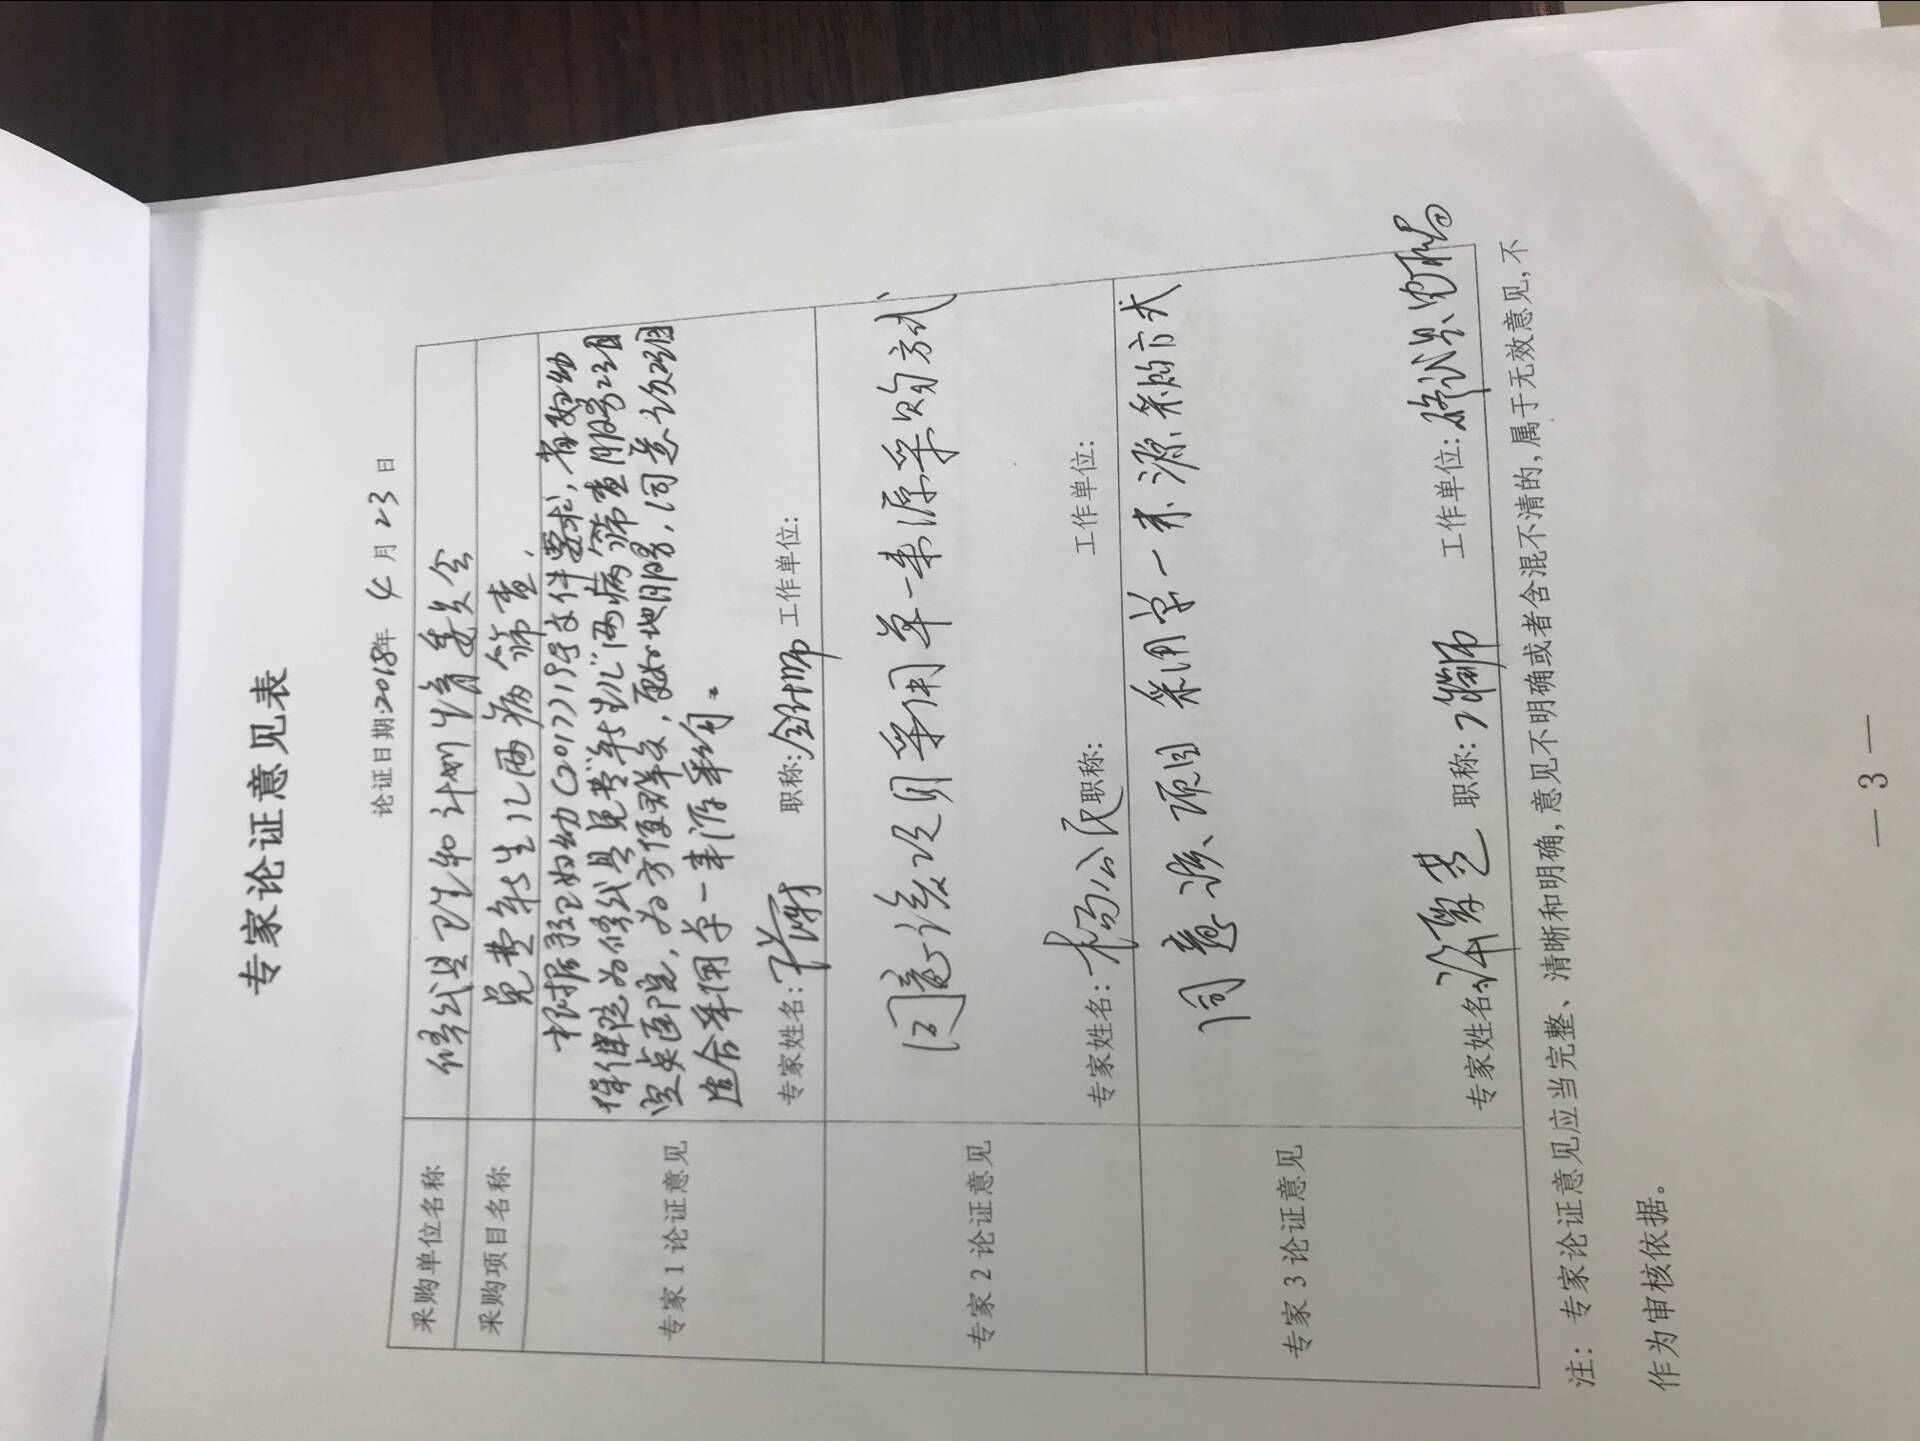 专家论证意见表
论证日期:2018年 4 月 23 日
采购单位名称 修武县卫生和计划生育委员会
采购项目名称 免费新生儿两病筛查
专家1论证意见
根据豫卫妇幼(2017)19号文件要求,省妇幼
保健院为修武县免费新生儿"两病"筛查服务项目
定点医院,为方便群众,更好地服务,同意该项目
适合采用单一来源采购。
专家姓名: 职称: 工作单位:
专家2论证意见
同意该项目采用单一来源采购方式
专家姓名:杨公民 职称: 工作单位:
专家3论证意见
同意该项目采用单一来源采购方式
专家姓名: 职称: 工作单位:
注:专家论证意见应当完整、清晰和明确,意见不明确或者含混不清的,属于无效意见,不
作为审核依据。
— 3 —